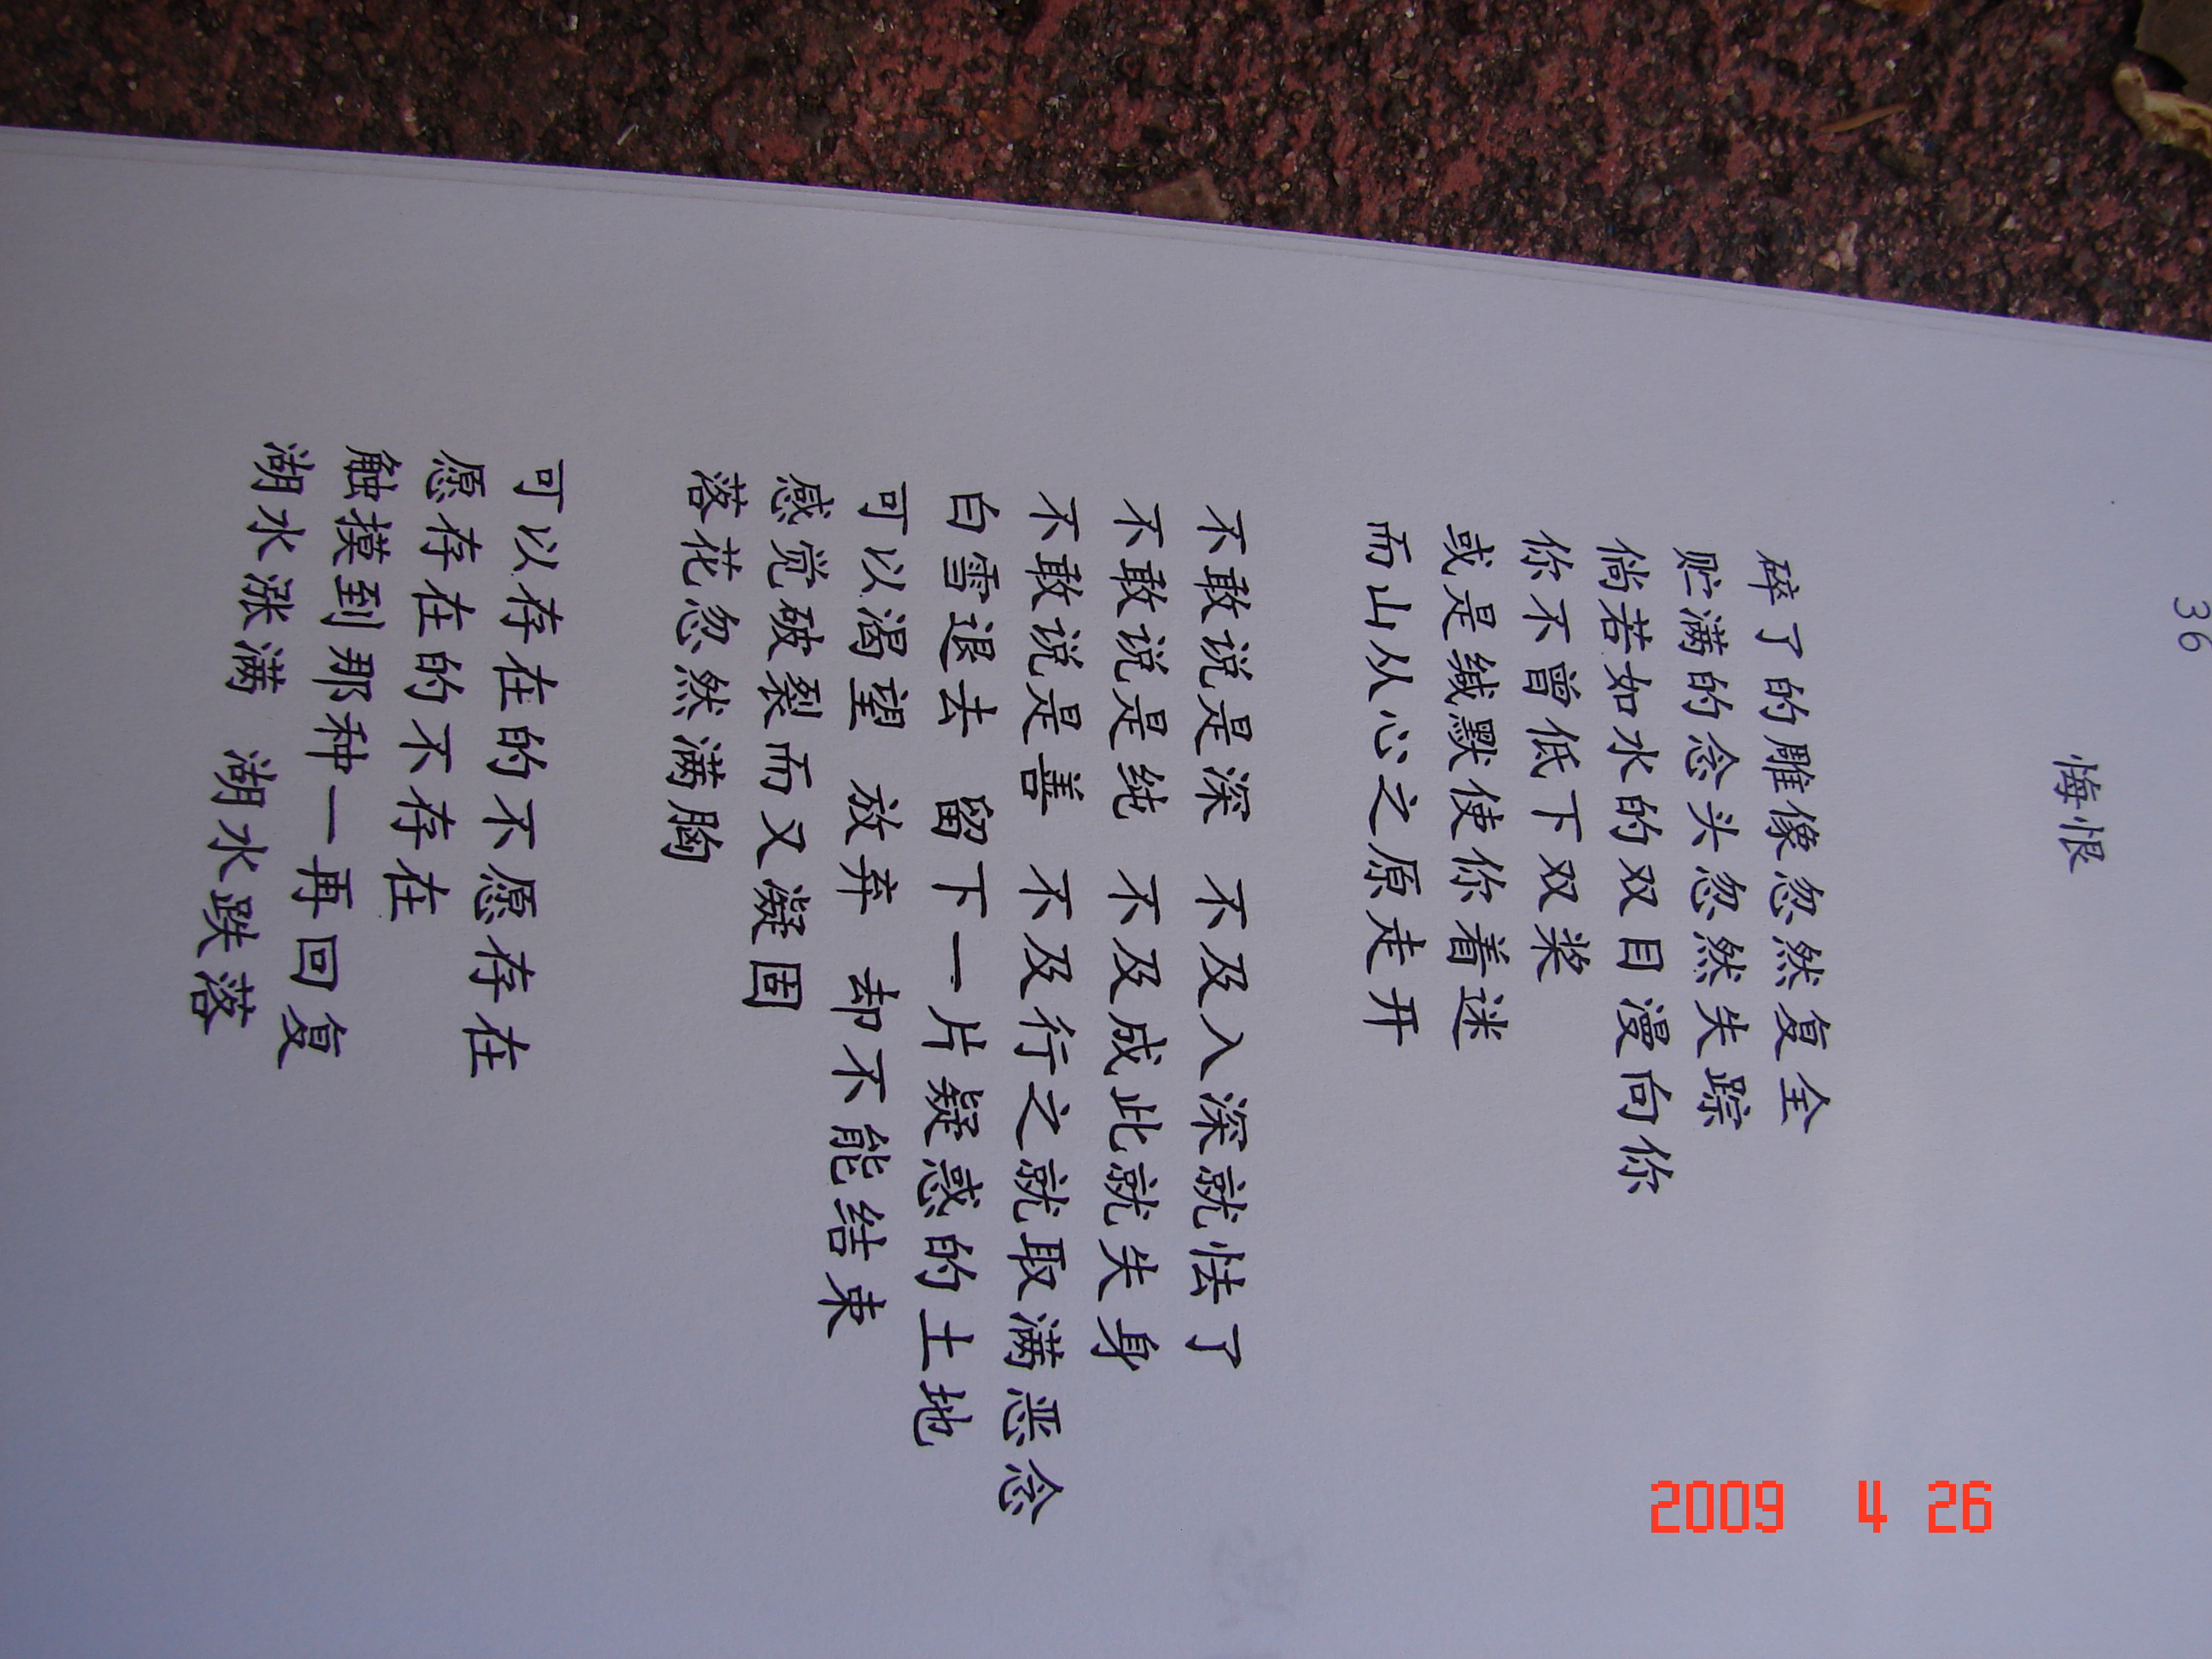 36
悔恨
碎了的雕像忽然复全
贮满的念头忽然失踪
倘若如水的双目漫向你
你不曾低下双桨
或是缄默使你着迷
而山从心之原走开
不敢说是深 不及入深就怯了
不敢说是纯 不及成此就失身
不敢说是善 不及行之就取满恶念
白雪退去 留下一片疑惑的土地
可以渴望 放弃 却不能结束
感觉破裂而又凝固
落花忽然满胸
可以存在的不愿存在
愿存在的不存在
触摸到那种一再回复
湖水涨满 湖水跌落
2009 4 26